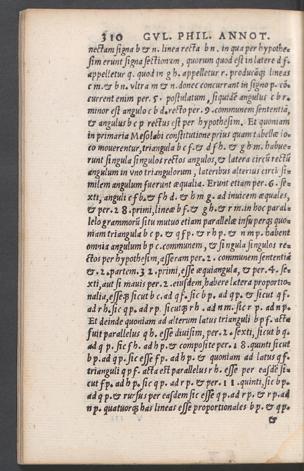 310 GVL. PHIL. ANNOT.
nectam signa b & n. linea recta b n. in qua per hypothe-
sim erunt signa sectionum, quorum quod est in latere d f.
appelletur q. quod in g h. appelletur r. producāq; lineas
c m. & b n. vltra m & n. donec concurrant in signo p. cō-
current enim per 5. postulatum, siquidē angulus c b r.
minor est angulo c b d. recto per 9. communem sententiā,
& angulus b c p rectus est per hypothesim. Et quoniam
in primaria Mesolabi constitutione prius quam tabellæ lo-
co mouerentur, triangula b c f. & d f h. & g h m. habue-
runt singula singulos rectos angulos, & latera circū rectū
angulum in vno triangulorum, lateribus alterius circū si-
milem angulum fuerunt æqualia. Erunt etiam per 6. se-
xti, anguli c f b. & f h d. & h m g. ad inuicem æquales,
& per 28. primi, lineæ b f. & g h. & r m. in hoc paral-
lelogrammorū situ mutuo etiam parallelæ insuper q; quo-
niam triangula b c p. & q f p. & r h p. & n m p. habent
omnia angulum b p c. communem, & singula singulos re-
ctos per hypothesim, asseram per 2. communem sententiā
& 2. partem 32. primi, esse æquiangula, & per 4. se-
xti, aut si mauis per 2. eiusdem, habere latera proportio-
nalia, esseq; sicut b c. ad q f. sic b p. ad q p. & sicut q f.
ad r h. sic q p. ad r p. sicutq; r h. ad n m. sic r p. ad n p.
Et deinde quoniam ad alterum latus trianguli b p f. acta
fuit parallelus q h. esse diuisim, per 2. sexti, sicut b q.
ad q p. sic f h. ad h p. & composite per 18. quinti sicut
b p. ad q p. sic esse f p. ad h p. & quoniam ad latus q f.
trianguli q p f. acta est parallelus r h. esse per easdē si-
cut f p. ad h p. sic q p. ad r p. & per 11. quinti, sic b p.
ad q p. & rursus per easdem sic esse q p. ad r p. & r p. ad
n p. quatuorq; has lineas esse proportionales b p. & q p.
&